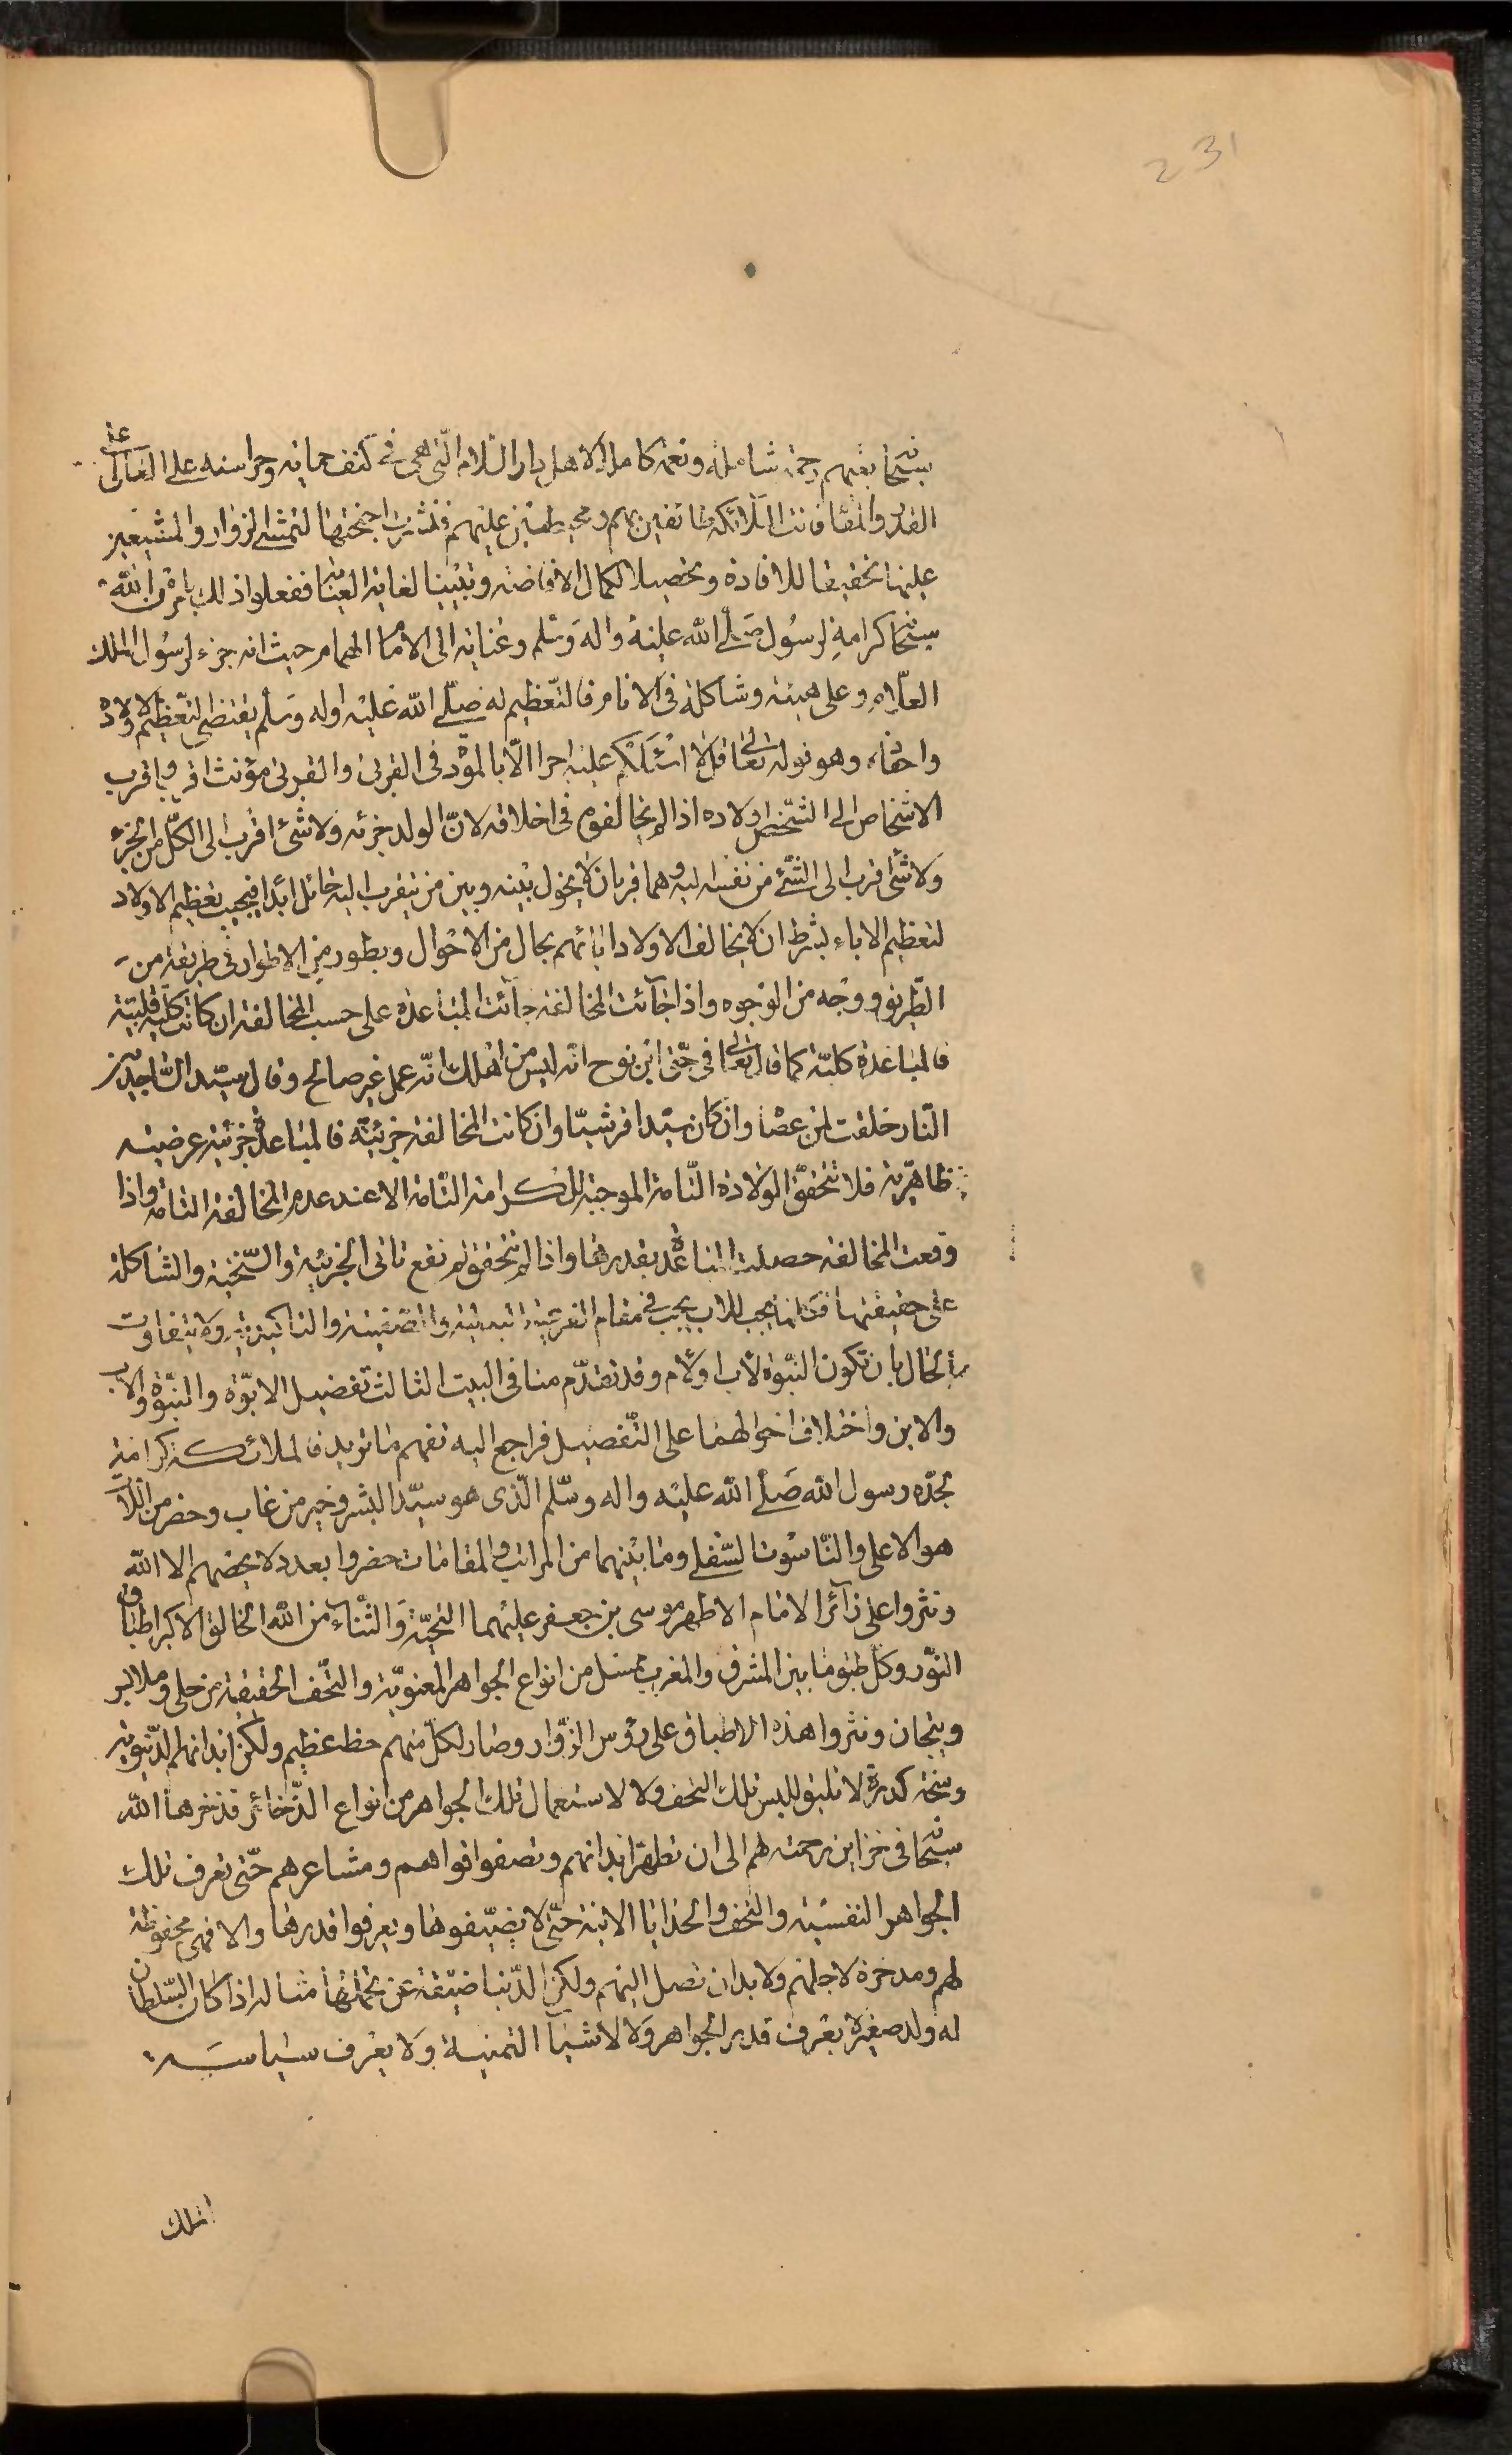 231
سبحانه بهم رحمة شاملة ونعمة كاملة لاهل دار السلام التى هى فى كنف حمايته وحراسته على العالى
القدر والمقام فانت الملائكة طائفين بهم ومحيطين عليهم فنشرت اجنحتها لتمشى الزوار والمشيعين
عليها تحقيقا للافادة وتحصيلا لكمال الافاضة وتبيينا لغاية العناية ففعلوا ذلك بامر من الله
سبحانه كرامة لرسول صلى الله عليه واله وسلم وعناية الى الامام الهمام من حيث انه جزء لرسول الملك
العلام وعلى هيئته وشاكلته فى الانام فالتعظيم له صلى الله عليه واله وسلم يقتضى التعظيم لاولاده
واحفاده وهو قوله تعالى قل لا اسئلكم عليه اجرا الا المودة فى القربى والقربى مؤنث اقرب واقرب
الاشخاص الى الشخص اولاده اذا لم يخالفوه فى اخلاقه لان الولد جزئه ولا شئ اقرب الى الكل من الجزء
ولا شئ اقرب الى الشئ من نفسه اليه وهما قربان لا يحول بينه وبين من يتقرب اليه حائل ابدا فيجب تعظيم الاولاد
لتعظيم الاباء بشرط ان لا يخالف الاولاد ابائهم بحال من الاحوال وبطور من الاطوار فى طريقة من
الطريق ووجه من الوجوه واذا جائت المخالفة جائت المباعدة على حسب المخالفة ان كانت كلية قلبية
فالمباعدة كلية كما قال تعالى فى حق ابن نوح انه ليس من اهلك انه عمل غير صالح وقال سيد الساجدين
النار خلقت لمن عصا وان كان سيدا قرشيا وان كانت المخالفة جزئية فالمباعدة جزئية عرضية
ظاهرية فلا تتحقق الولادة التامة الموجبة للكرامة التامة الا عند عدم المخالفة التامة واذا
وقعت المخالفة حصلت المباعدة بقدرها واذا لم تتحقق لم تقع تاتى الجزئية والسنخية والشاكلة
على حقيقتها فكلما يجب للاب يجب فى مقام الفرعية التبعية والصفتية والتاكيدية ولا يتفاوت
الحال بان تكون النبوة لاب او لام وقد تقدم منا فى البيت الثالث تفصيل الابوة والنبوة والاب
والابن واختلاف احوالهما على التفصيل فراجع اليه تفهم ما نريد فالملائكة كرامة
لجده رسول الله صلى الله عليه واله وسلم الذى هو سيد البشر وخير من غاب وحضر من الملأ
هو الاعلى والناسوت السفلى وما بينهما من المراتب والمقامات حضروا بعدد لا يحصيهم الا الله
ونثروا على زآئر الامام الاطهر موسى بن جعفر عليهما التحية والثناء من الله الخالق الاكبر اطباق
النور وكل طبق ما بين المشرق والمغرب ممتلى من انواع الجواهر المعنوية والتحف الحقيقية من حلى وملابس
وتيجان ونثروا هذه الاطباق على رؤس الزوار وصار لكل منهم حظ عظيم ولكن ابدانهم الدنيوية
وسخة كدرة لا تليق للبس تلك التحف ولا لاستعمال تلك الجواهر من انواع الذخائر فذخرها الله
سبحانه فى خزاين رحمته لهم الى ان تطهر ابدانهم وتصفوا قواهم ومشاعرهم حتى تعرف تلك
الجواهر النفسية والتحف والهدايا الابنة حتى لا يضيعوها ويعرفوا قدرها والا فهى محفوظة
لهم ومدخرة لاجلهم ولا بد ان تصل اليهم ولكن الدنيا ضيقة عن تحملها مثاله اذا كان السلطان
له ولد صغير لا يعرف قدر الجواهر ولا الاشيآ الثمينة ولا يعرف سياسة
الملك